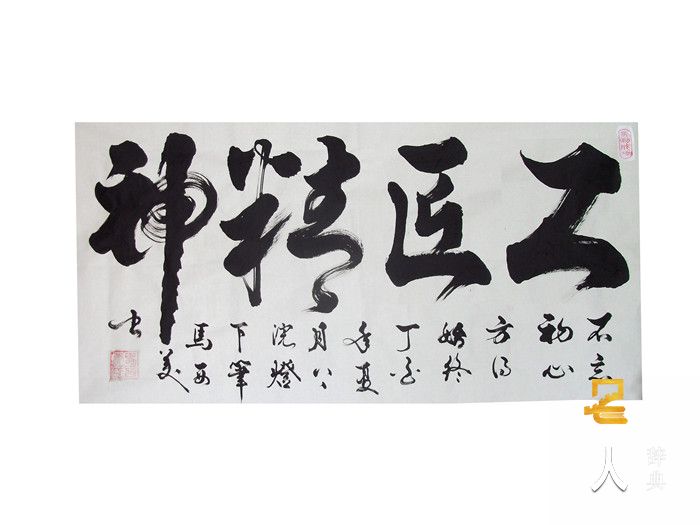 工匠精神
不忘
初心
方得
始终
丁酉
年夏
月
燈
下筆
馬西
美
书
人
辞典